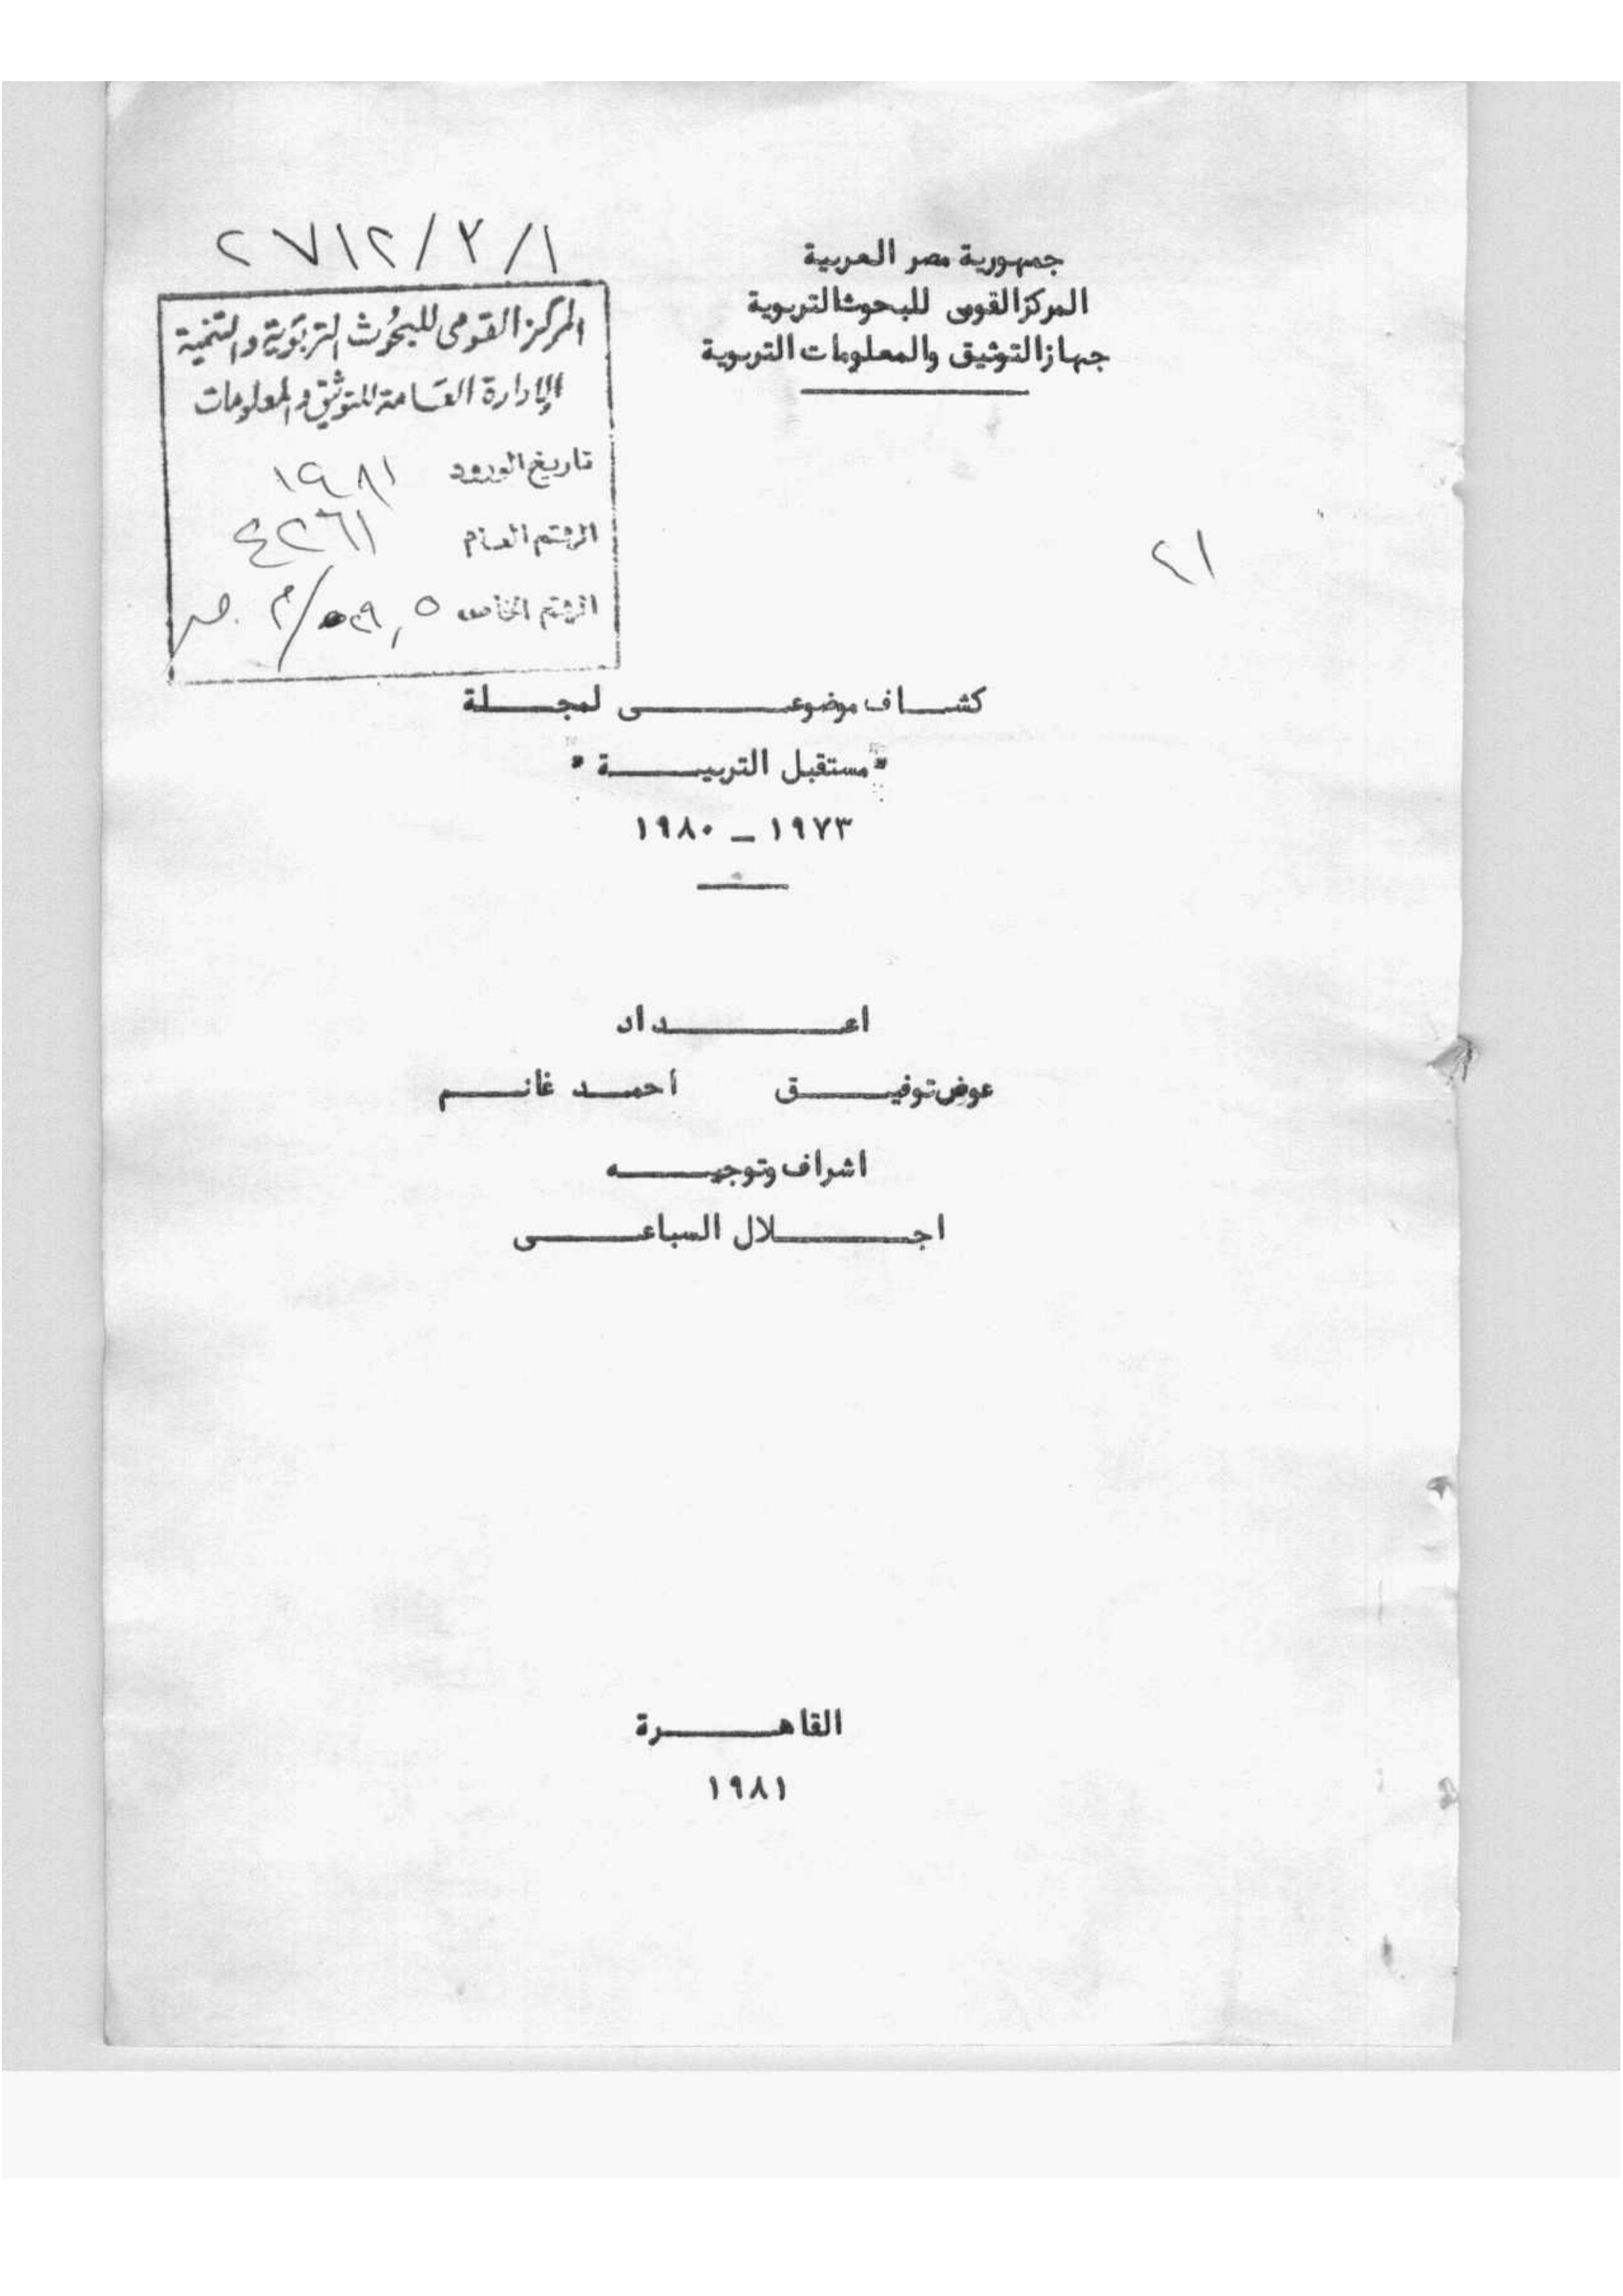 جمهورية مصر العربية
المركز القومى للبحوث التربوية
جهاز التوثيق والمعلومات التربوية
٢٧١٢/٣/١
المركز القومى للبحوث التربوية والتنمية
الإدارة العامة للتوثيق والمعلومات
تاريخ الورود ١٩٨١
الرقم العام ٤٢٦١
الرقم الخاص
٢١
كشاف موضوعى لمجلة
"مستقبل التربية"
١٩٧٣ – ١٩٨٠
اعداد
عوض توفيق أحمد غانم
اشراف وتوجيه
اجلال السباعى
القاهرة
١٩٨١